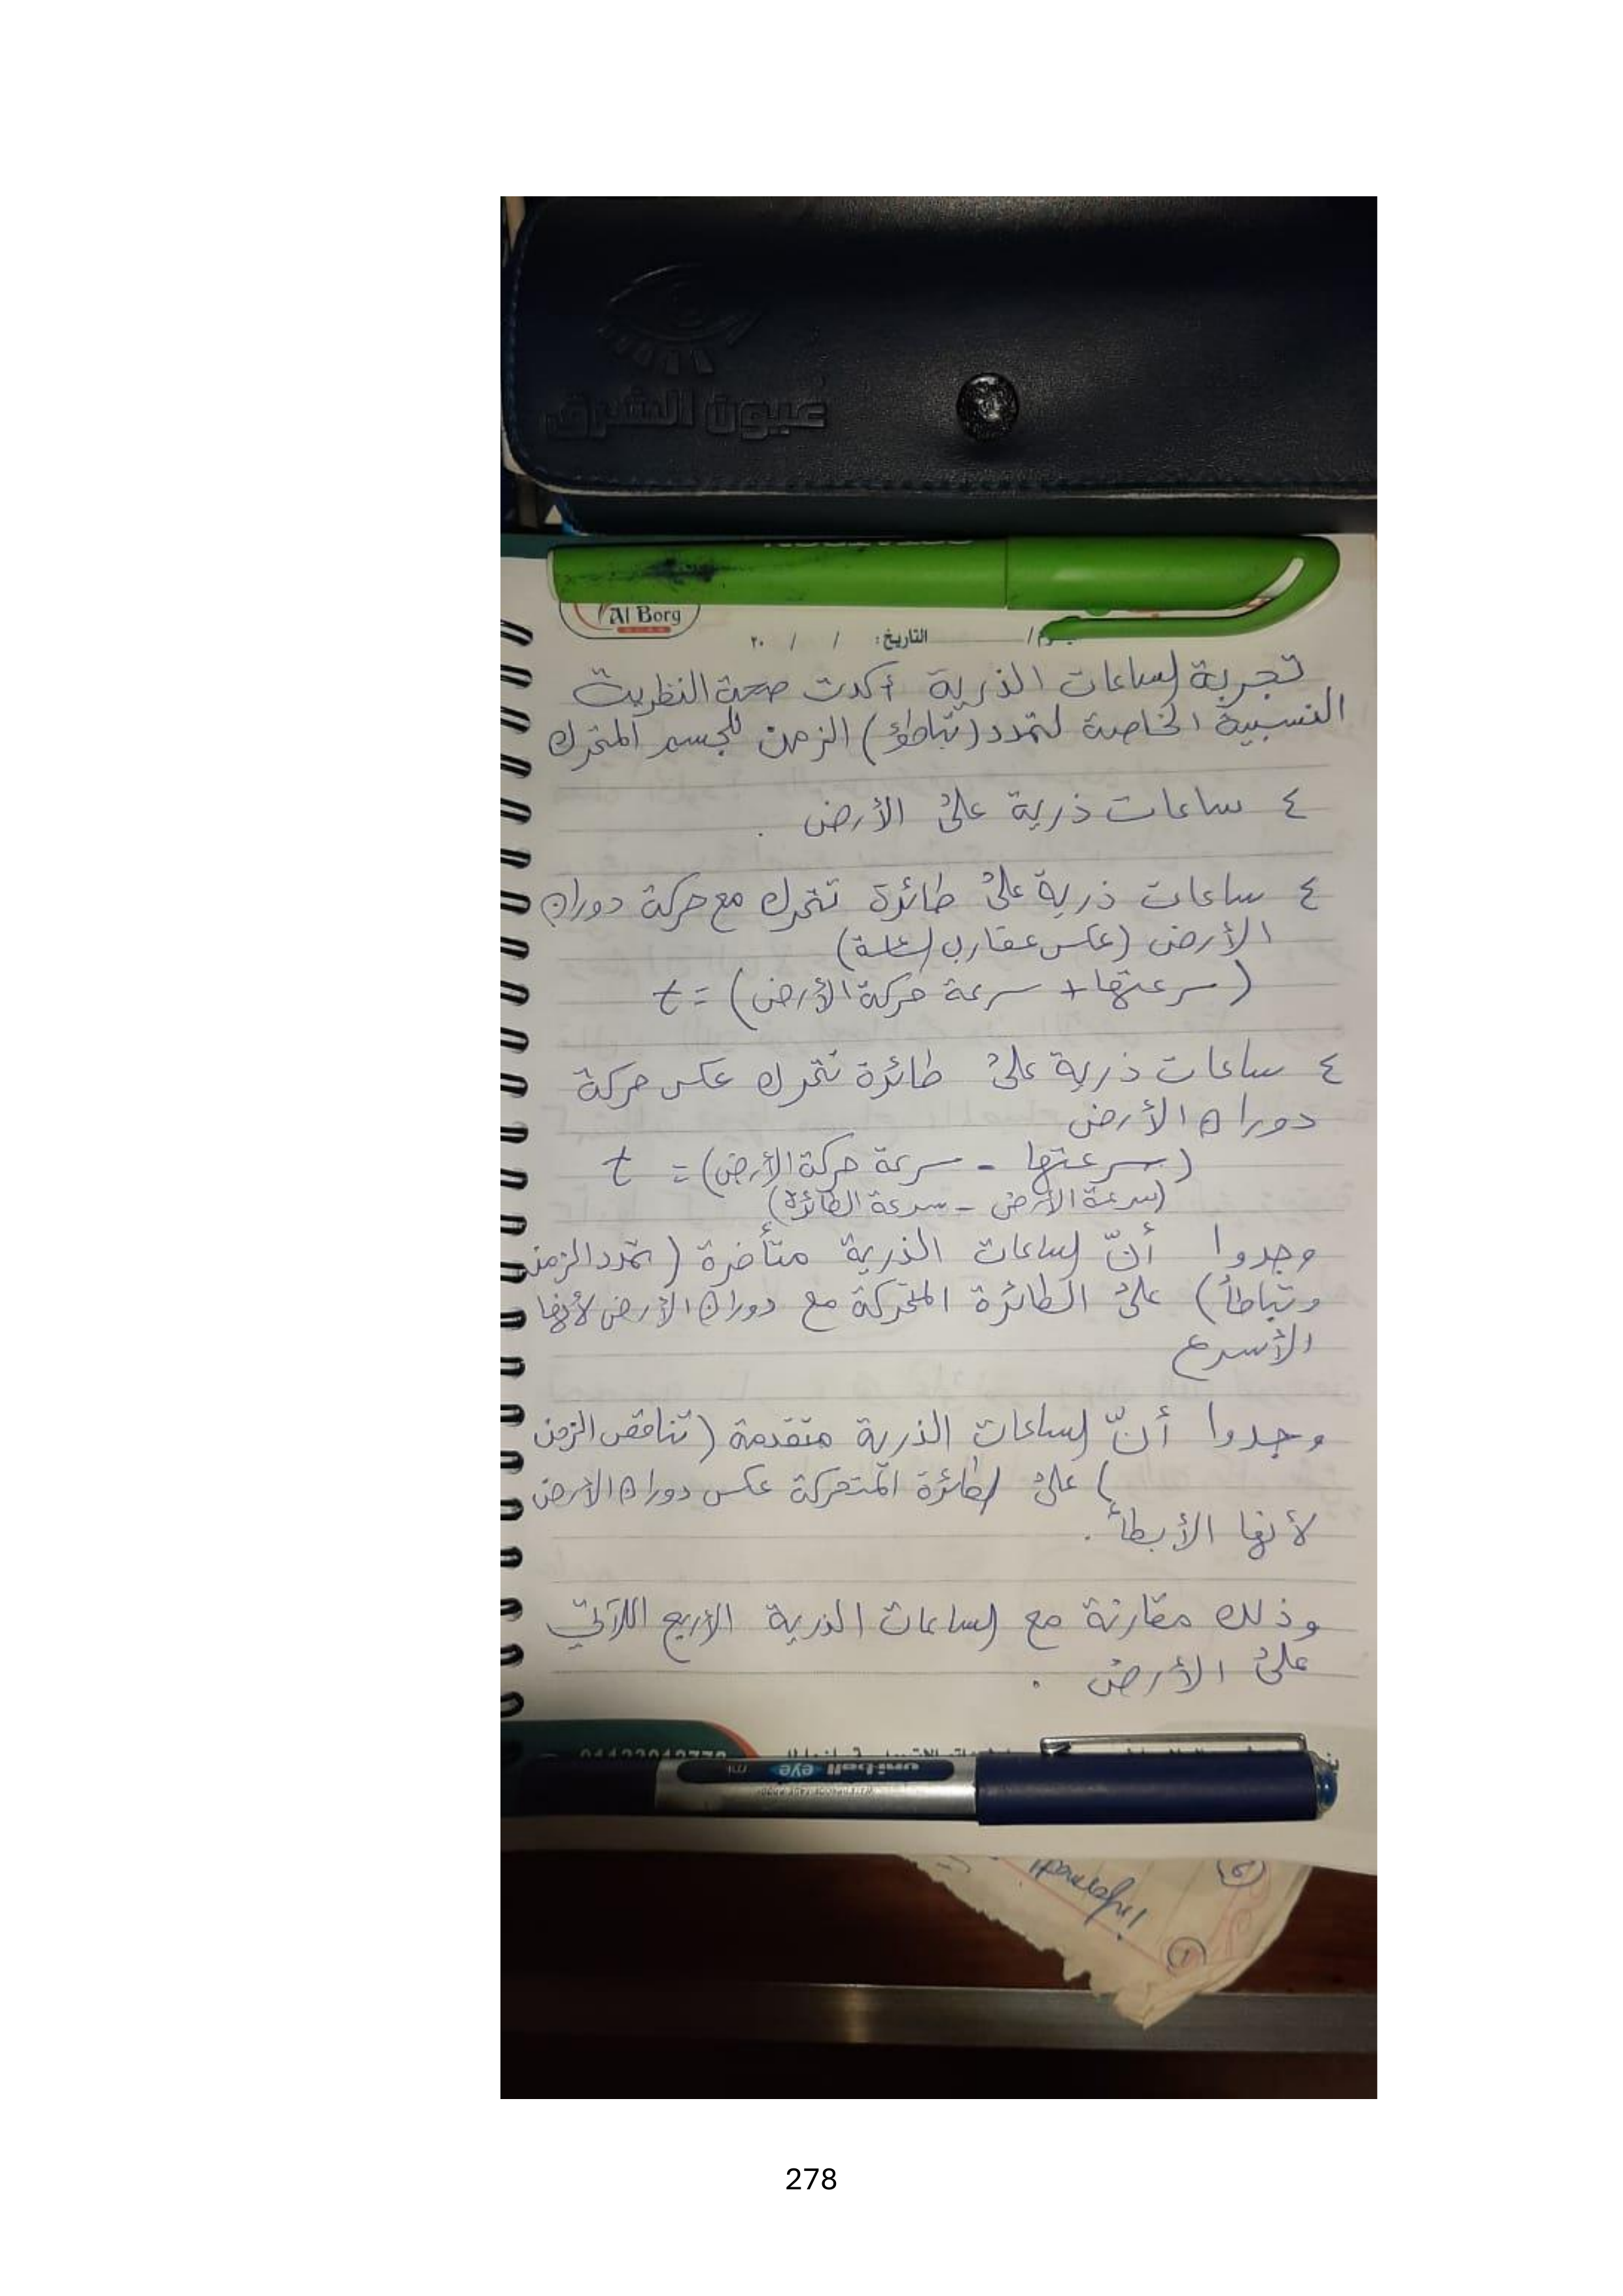 عيون الشرق
Al Borg
SCAN
التاريخ: / / ٢٠
تجربة الساعات الذرية أكدت صحة النظرية
النسبية الخاصة لتمدد (تباطؤ) الزمن للجسم المتحرك
٤ ساعات ذرية على الأرض .
٤ ساعات ذرية على طائرة تتحرك مع حركة دوران
الأرض (عكس عقارب الساعة)
(سرعتها + سرعة حركة الأرض) = t
٤ ساعات ذرية على طائرة تتحرك عكس حركة
دوران الأرض
(سرعتها - سرعة حركة الأرض) = t
(سرعة الأرض - سرعة الطائرة)
وجدوا أنّ الساعات الذرية متأخرة (تمدد الزمن
وتباطأ) على الطائرة المتحركة مع دوران الأرض لأنها
الأسرع
وجدوا أنّ الساعات الذرية متقدمة (تناقص الزمن
) على الطائرة المتحركة عكس دوران الأرض
لأنها الأبطأ .
وذلك مقارنة مع الساعات الذرية الأربع اللآتي
على الأرض .
uni-ball eye
278